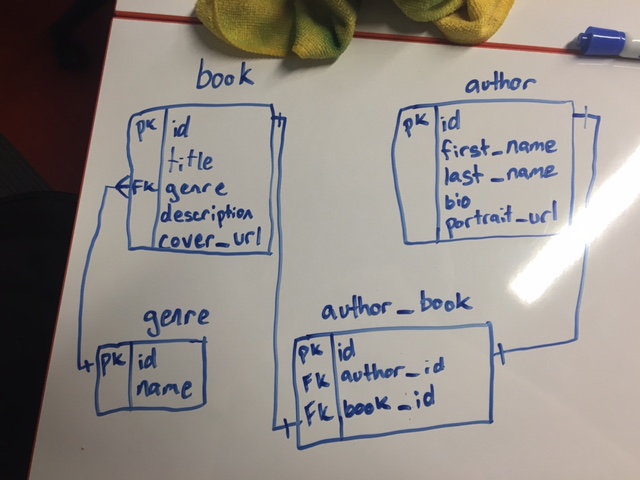 book
PK id
title
FK genre
description
cover_url
author
PK id
first_name
last_name
bio
portrait_url
genre
PK id
name
author_book
PK id
FK author_id
FK book_id